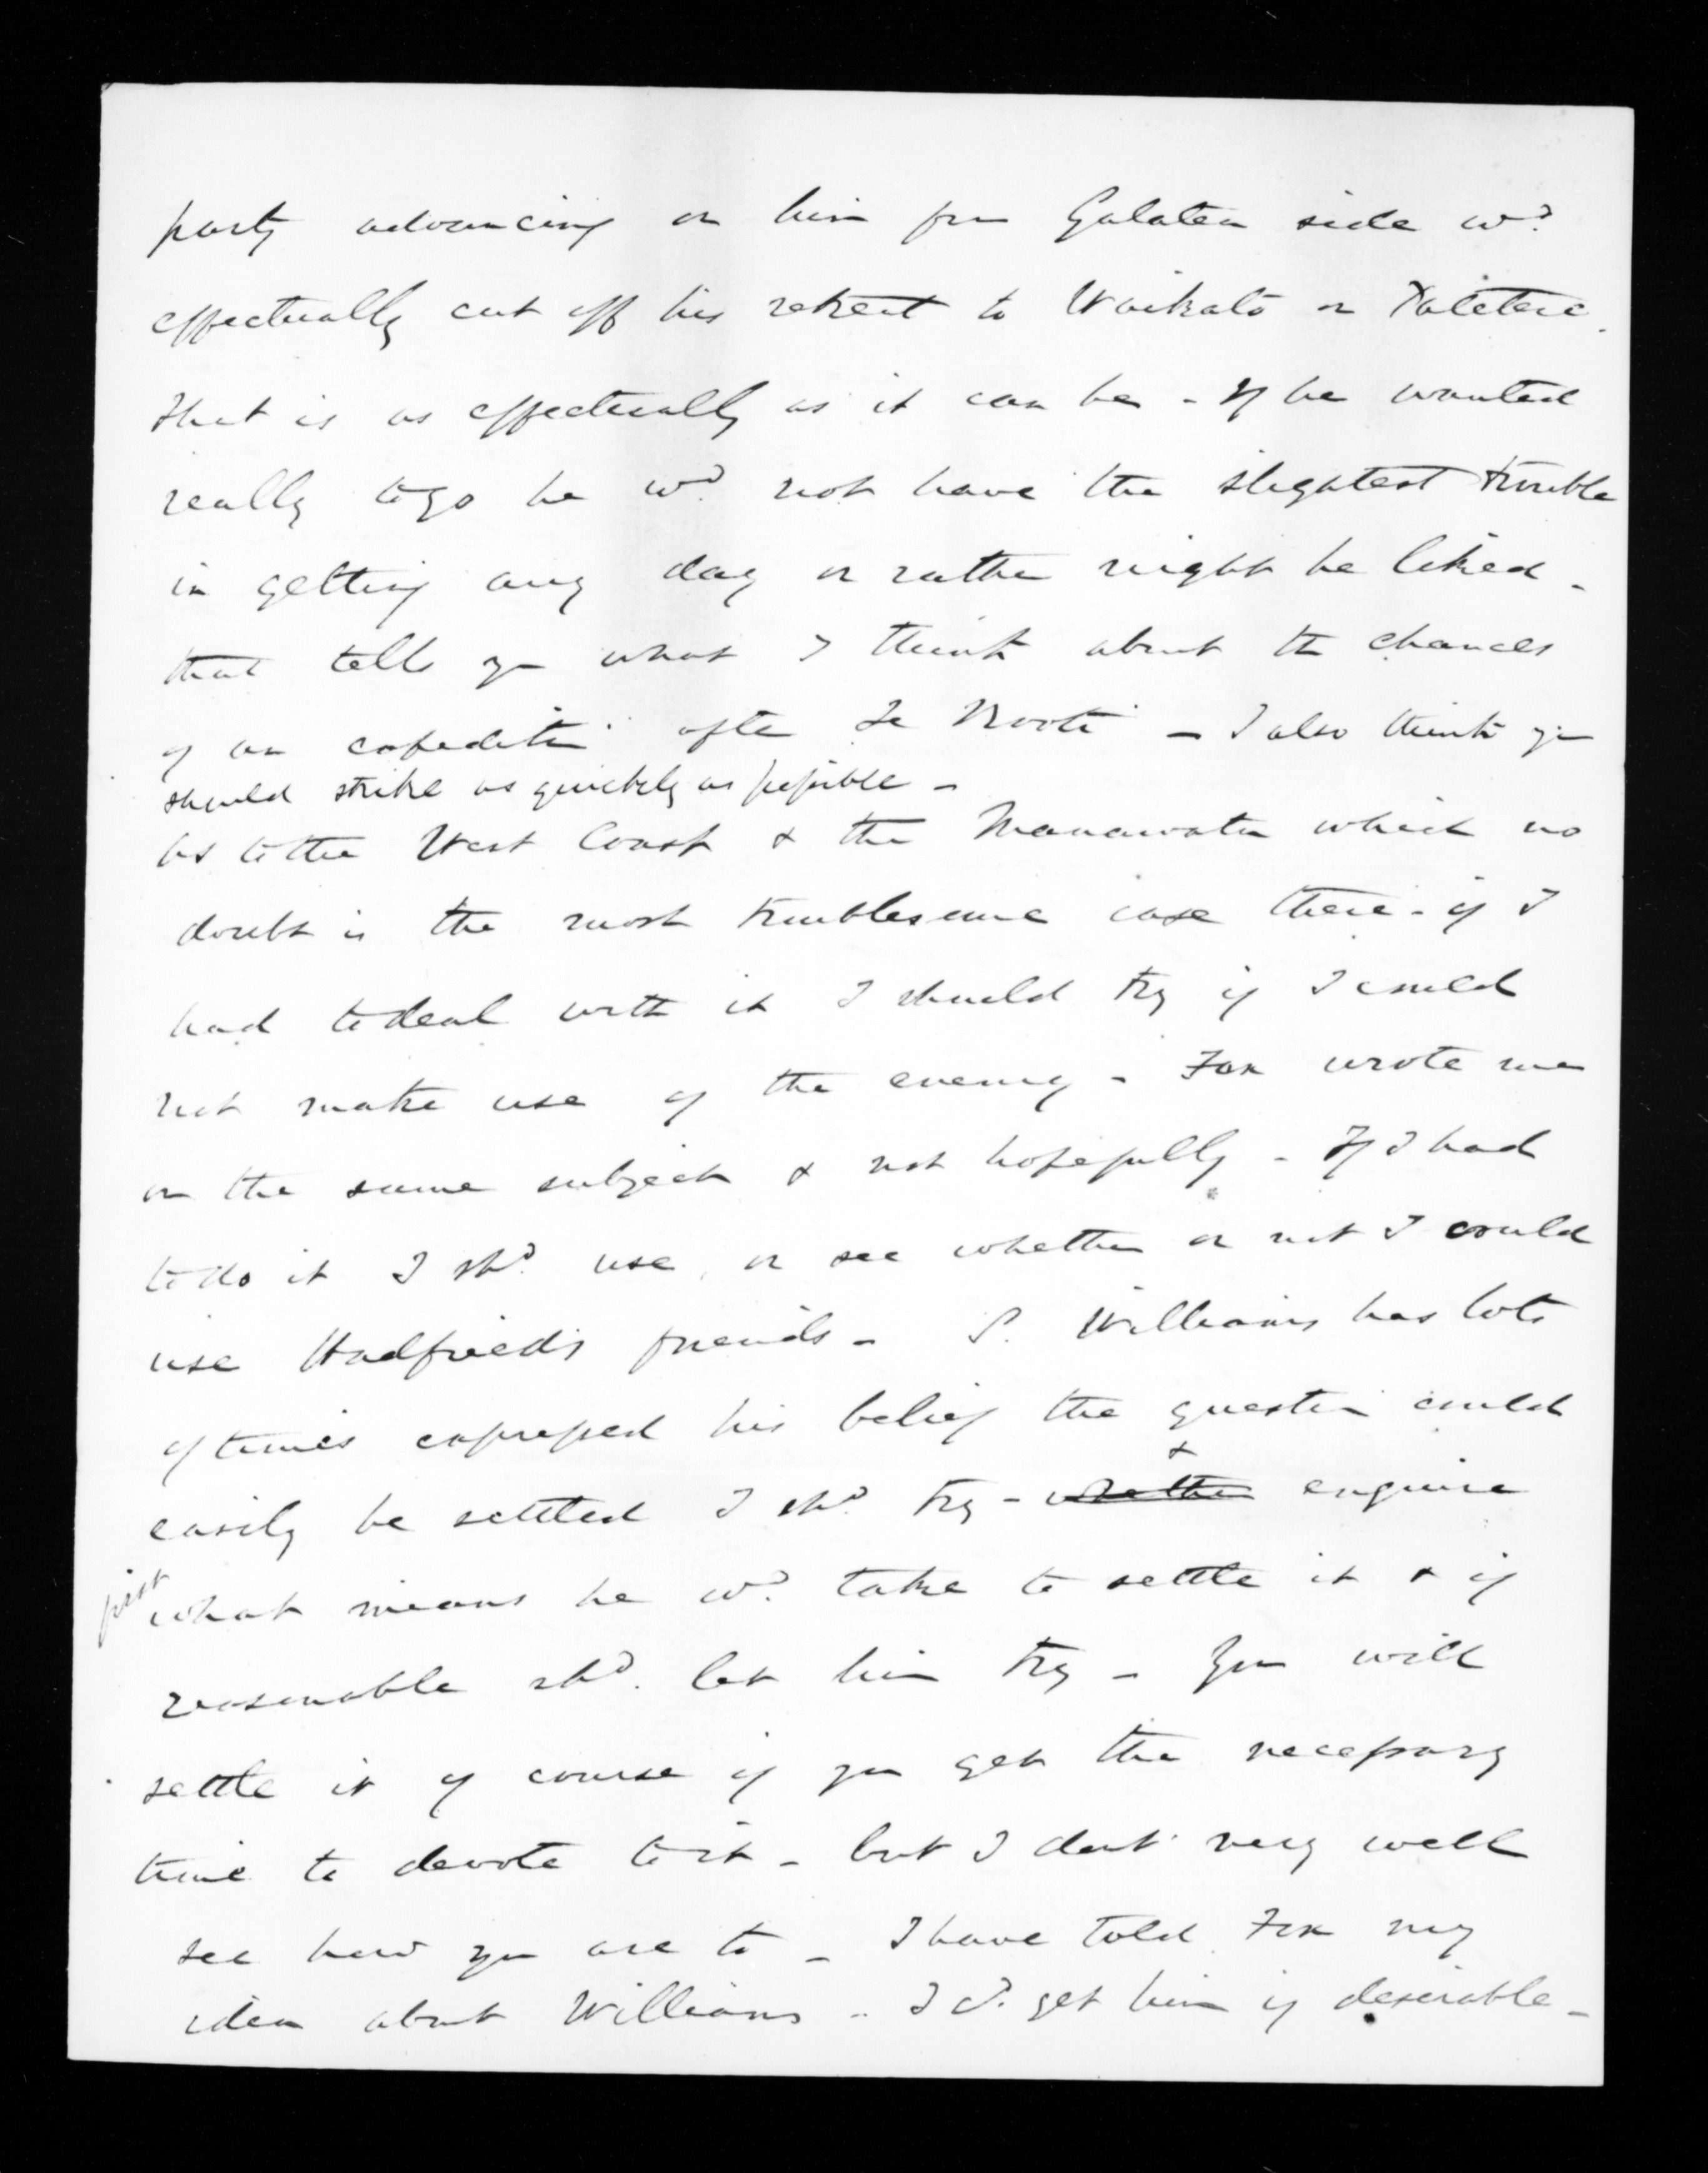 party advancing on him from Galatea side wd
effectually cut off his retreat to Waikato or Patetere.
that is as effectually as it can be - If he wanted
really to go he wd not have the slightest trouble
in getting any day or rather night he liked -
that tells you what I think about the chances
of an expedition after Te Kooti - I also think you
should strike as quickly as possible -
As to the West Coast & the Manawatu which no
doubt is the most troublesome case there - if I
had to deal with it I should try if I could
not make use of the enemy - Fox wrote me
on the same subject & not hopefully - If I had
to do it I shd use, or see whether or not I could
use Hadfield's friends - S. Williams has lots
of times expressed his belief the question could
easily be settled I shd try - whether & enquire
first what means he wd take to settle it & if
reasonable shd let him try - You will
settle it of course if you get the necessary
time to devote to it - but I dont very well
see how you are to - I have told Fox my
idea about Williams - I cd get him if desirable -